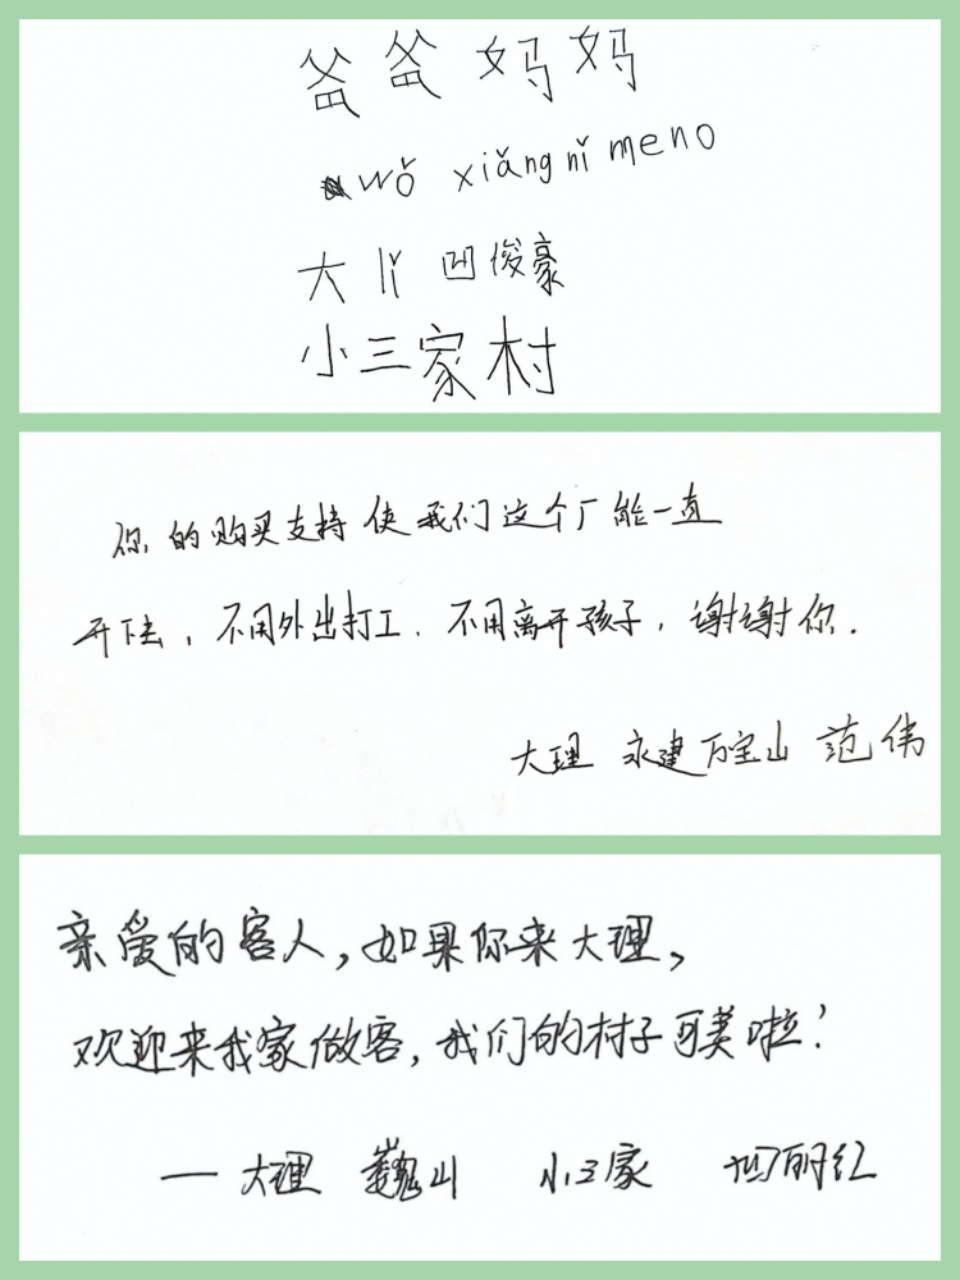 爸爸妈妈
wǒ xiǎng nǐ meno
大 lǐ 俊豪
小三家村
你的购买支持使我们这个厂能一直
开下去，不用外出打工．不用离开孩子，谢谢你．
大理 永建万宝山 范伟
亲爱的客人，如果你来大理，
欢迎来我家做客，我们的村子可美啦！
— 大理 巍山 小三家 丽红